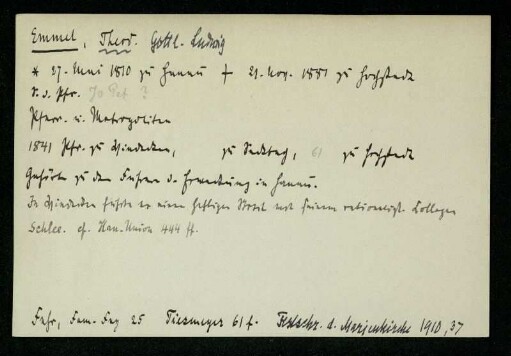 Emmel, Theod. Gottl. Ludwig
* 27. Mai 1810 zu Hanau † 21. Nov. 1881 zu Hochstadt
S. d. Pfr. Jo Pet ?
Pfarr. u. Metropolitan
1841 Pfr. zu Windecken, zu 61 zu Hochstadt
Gehörte zu den Führern d. Erweckung in Hanau.
In Windecken führte er einen heftigen Streit mit seinem rationalist. Collegen
Schlee. cf. Han. Union 444 ff.
Fuhr, Fam-Tag 25 Tiesmeyer 61 f. Festschr. d. Marienkirche 1910, 37